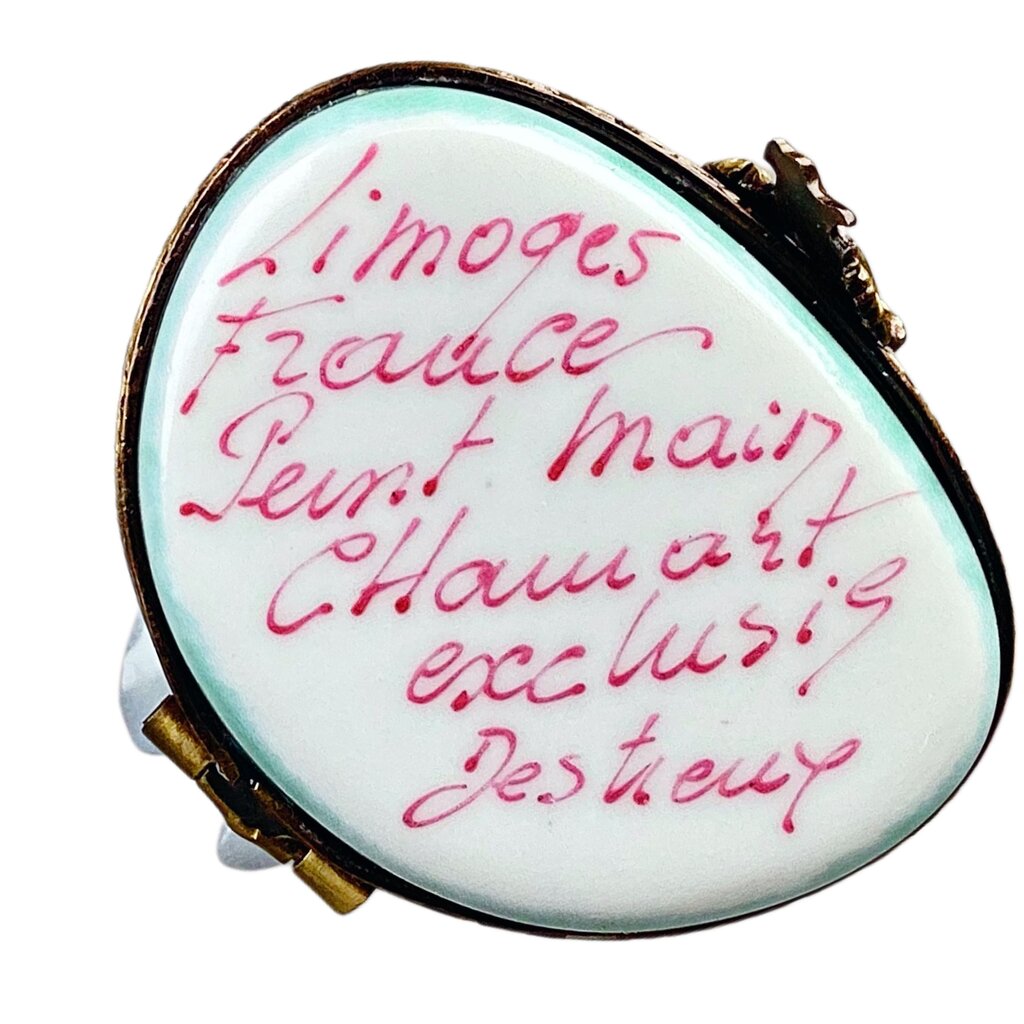 Limoges
France
Peint main
CHamart
exclusif
Destieux